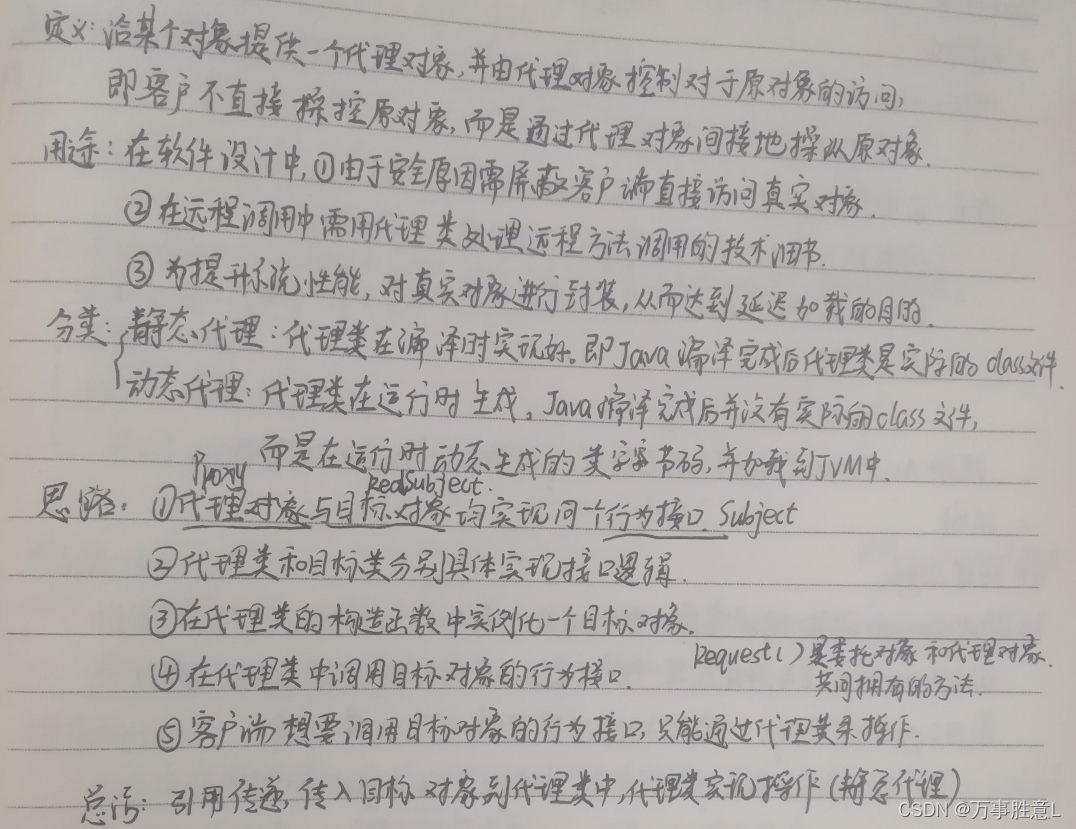 定义：给某个对象提供一个代理对象，并由代理对象控制对于原对象的访问，
即客户不直接操控原对象，而是通过代理对象间接地操纵原对象。
用途：在软件设计中，①由于安全原因需屏蔽客户端直接访问真实对象。
②在远程调用中需用代理类处理远程方法调用的技术细节.
③为提升系统性能，对真实对象进行封装，从而达到延迟加载的目的.
分类：静态代理：代理类在编译时实现好。即Java编译完成后代理类是实际的class文件.
动态代理：代理类在运行时生成，Java编译完成后并没有实际的class文件，
而是在运行时动态生成的类字节码，并加载到JVM中.
Proxy RealSubject.
思路：①代理对象与目标对象均实现同一个行为接口 Subject
②代理类和目标类分别具体实现接口逻辑.
③在代理类的构造函数中实例化一个目标对象.
④在代理类中调用目标对象的行为接口.
Request()是委托对象和代理对象
共同拥有的方法.
⑤客户端想要调用目标对象的行为接口，只能通过代理类来操作.
总结：引用传递，传入目标对象到代理类中，代理类实现操作(静态代理)
CSDN @万事胜意L